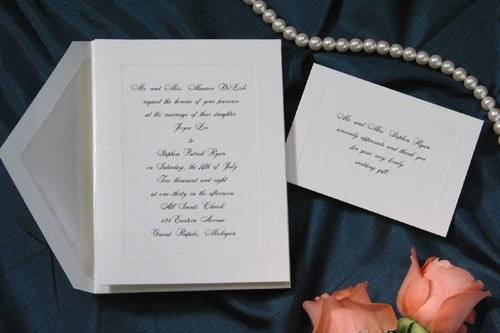 Mr. and Mrs. Maurice DeLisle
request the honour of your presence
at the marriage of their daughter
Joyce Lee
to
Stephen Patrick Ryan
on Saturday, the fifth of July
Two thousand and eight
at one-thirty in the afternoon
All Saints Church
Eastern Avenue
Grand Rapids, Michigan
Mr. and Mrs. Stephen Ryan
sincerely appreciate and thank you
for your very lovely
wedding gift.